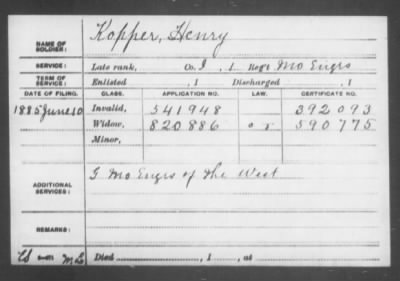 NAME OF SOLDIER: Kopper, Henry
SERVICE: Late rank, Co. I, 1 Reg't Mo Engrs
TERM OF SERVICE: Enlisted , 1 Discharged , 1
DATE OF FILING. CLASS. APPLICATION NO. LAW. CERTIFICATE NO.
1885 June 10 Invalid, 541948 392093
Widow, 820886 590775
Minor,
ADDITIONAL SERVICES: G Mo Engrs of the West
REMARKS:
Died , 1 , at